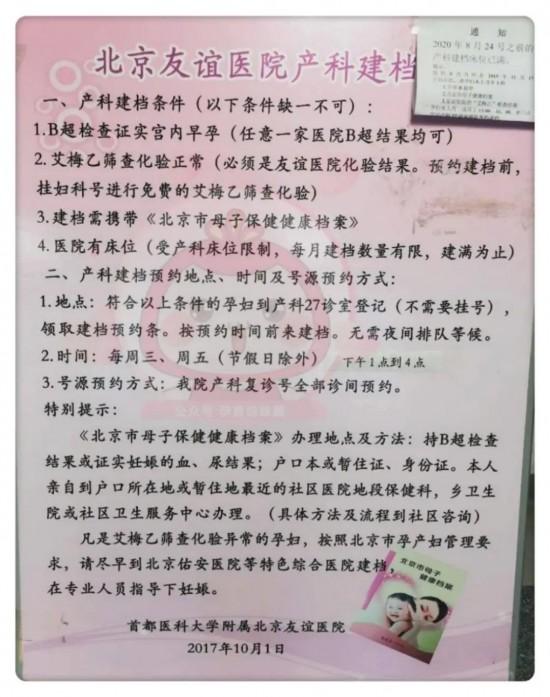 通 知
2020 年 8 月 24 号之前的
产科建档床位已满。
北京友谊医院产科建档
一、产科建档条件（以下条件缺一不可）：
1.B超检查证实宫内早孕（任意一家医院B超结果均可）
2.艾梅乙筛查化验正常（必须是友谊医院化验结果。预约建档前，
挂妇科号进行免费的艾梅乙筛查化验）
3.建档需携带《北京市母子保健健康档案》
4.医院有床位（受产科床位限制，每月建档数量有限，建满为止）
二、产科建档预约地点、时间及号源预约方式：
1.地点：符合以上条件的孕妇到产科27诊室登记（不需要挂号），
领取建档预约条。按预约时间前来建档。无需夜间排队等候。
2.时间：每周三、周五（节假日除外） 下午1点到4点
3.号源预约方式：我院产科复诊号全部诊间预约。
特别提示：
《北京市母子保健健康档案》办理地点及方法：持B超检查
结果或证实妊娠的血、尿结果；户口本或暂住证、身份证。本人
亲自到户口所在地或暂住地最近的社区医院地段保健科，乡卫生
院或社区卫生服务中心办理。（具体方法及流程到社区咨询）
凡是艾梅乙筛查化验异常的孕妇，按照北京市孕产妇管理要
求，请尽早到北京佑安医院等特色综合医院建档，
在专业人员指导下妊娠。
北京市母子
健康档案
首都医科大学附属北京友谊医院
2017年10月1日